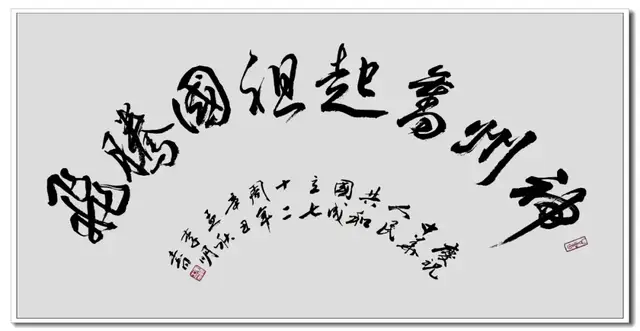 神州奮起祖國騰飛
慶祝
中華
人民
共和
國成
立七
十二
周年
辛丑
秋
李明